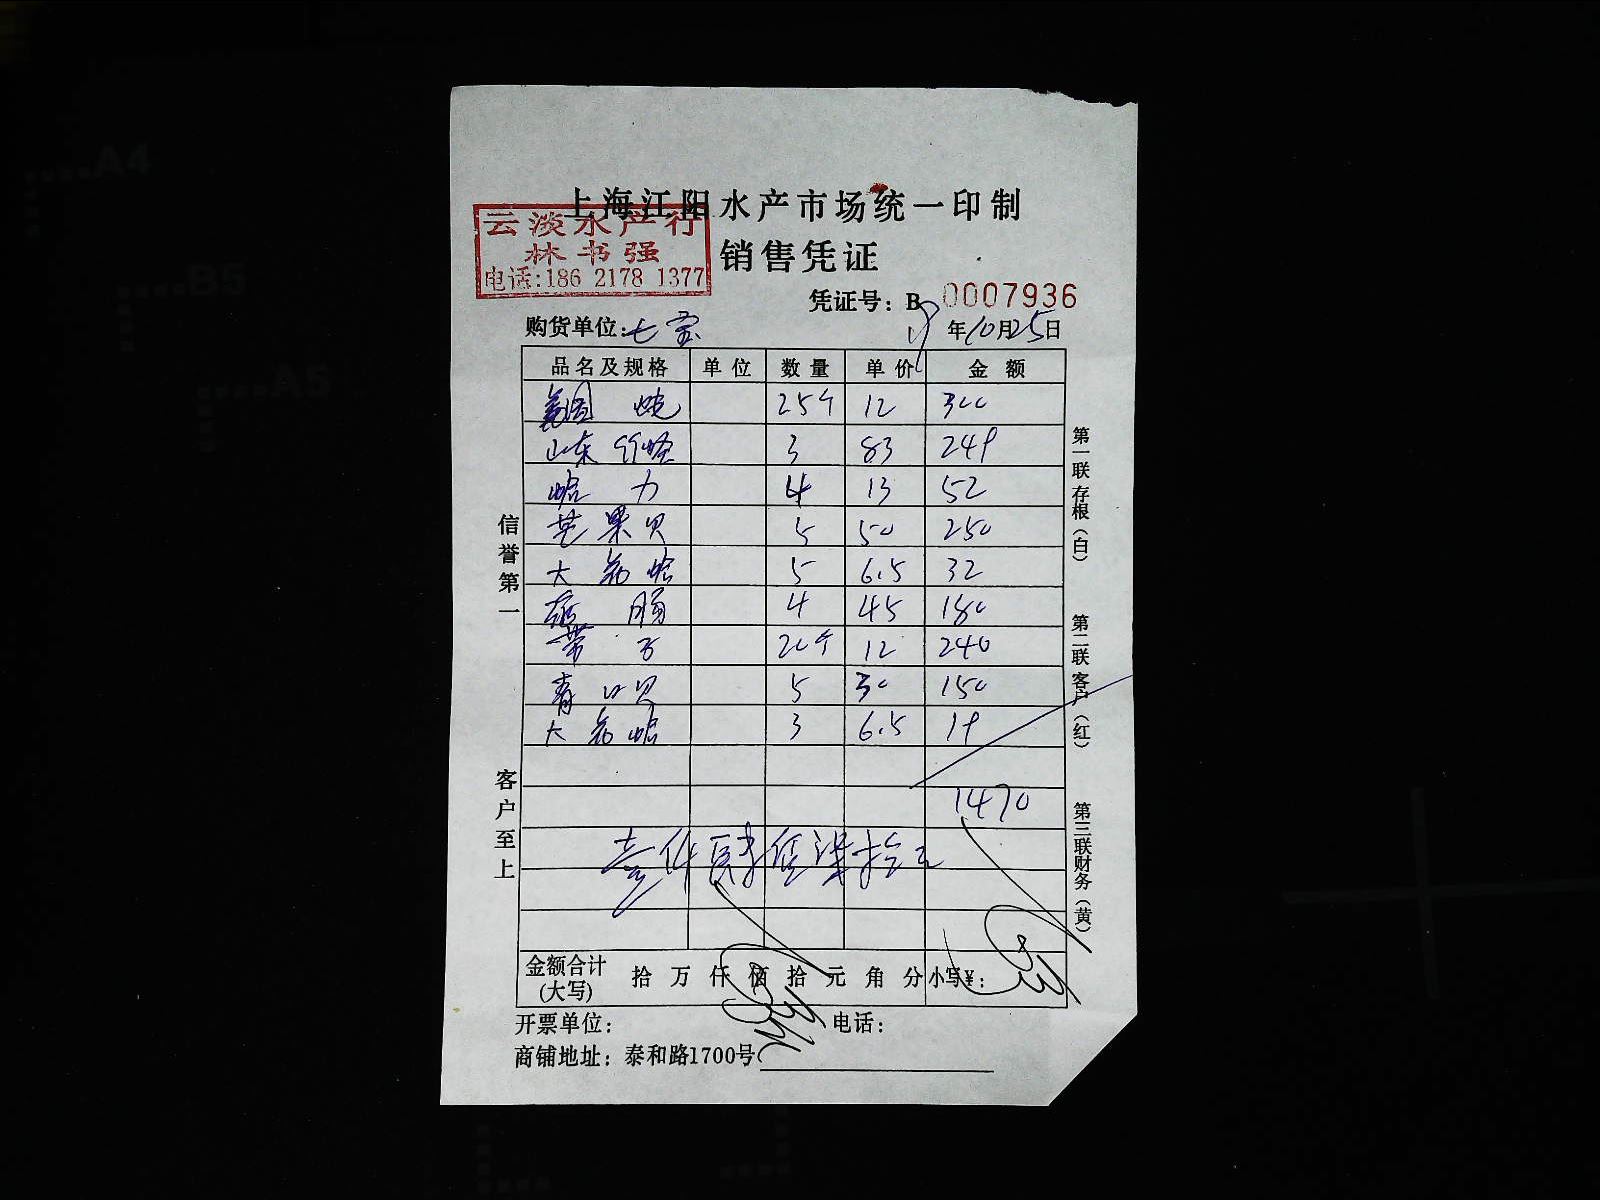 上海江阳水产市场统一印制
云淡水产行
林书强
电话:186 2178 1377
销售凭证
凭证号: B 0007936
购货单位: 七宝 19年10月25日
品名及规格 单位 数量 单价 金额
25个 12 300
山东 3 83 249
哈力 4 13 52
芒果贝 5 50 250
大 哈 5 6.5 32
4 45 180
带子 20个 12 240
青口贝 5 30 150
大 哈 3 6.5 19
1470
壹仟肆佰柒拾元
金额合计(大写) 拾 万 仟 佰 拾 元 角 分 小写¥:
开票单位: 电话:
商铺地址: 泰和路1700号
信誉第一
客户至上
第一联 存根(白)
第二联 客户(红)
第三联 财务(黄)
A4
B5
A5